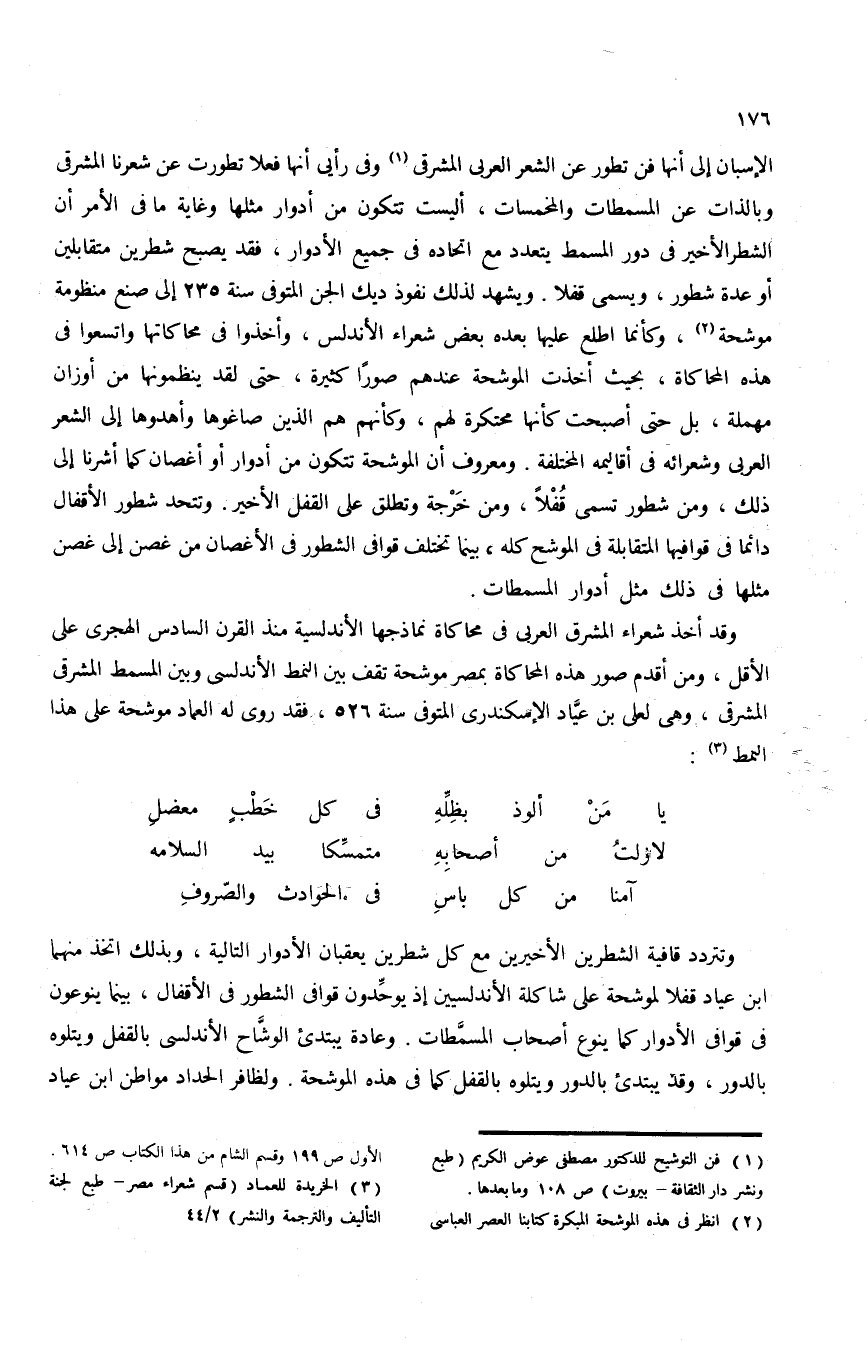 ١٧٦
الإسبان إلى أنها فن تطور عن الشعر العربى المشرقى (١) وفى رأيى أنها فعلا تطورت عن شعرنا المشرقى
وبالذات عن المسمطات والمخمسات ، أليست تتكون من أدوار مثلها وغاية ما فى الأمر أن
الشطر الأخير فى دور المسمط يتعدد مع اتحاده فى جميع الأدوار ، فقد يصبح شطرين متقابلين
أو عدة شطور ، ويسمى قفلا . ويشهد لذلك نفوذ ديك الجن المتوفى سنة ٢٣٥ إلى صنع منظومة
موشحة (٢) ، وكأنما اطلع عليها بعده بعض شعراء الأندلس ، وأخذوا فى محاكاتها واتسعوا فى
هذه المحاكاة ، بحيث أخذت الموشحة عندهم صورًا كثيرة ، حتى لقد ينظمونها من أوزان
مهملة ، بل حتى أصبحت كأنها محتكرة لهم ، وكأنهم هم الذين صاغوها وأهدوها إلى الشعر
العربى وشعرائه فى أقاليمه المختلفة . ومعروف أن الموشحة تتكون من أدوار أو أغصان كما أشرنا إلى
ذلك ، ومن شطور تسمى قُفْلاً ، ومن خَرْجة وتطلق على القفل الأخير . وتتحد شطور الأقفال
دائما فى قوافيها المتقابلة فى الموشح كله ، بينما تختلف قوافى الشطور فى الأغصان من غصن إلى غصن
مثلها فى ذلك مثل أدوار المسمطات .
وقد أخذ شعراء المشرق العربى فى محاكاة نماذجها الأندلسية منذ القرن السادس الهجرى على
الأقل ، ومن أقدم صور هذه المحاكاة بمصر موشحة تقف بين النمط الأندلسى وبين المسمط المشرقى
المشرقى ، وهى لعلى بن عيَّاد الإسكندرى المتوفى سنة ٥٢٦ ، فقد روى له العماد موشحة على هذا
النمط (٣) :
يا مَنْ ألوذ بظِلِّهِ فى كل خَطْبٍ معضلِ
لا زلتُ من أصحابِهِ متمسِّكا بيد السلامه
آمنا من كل باسِ فى الحوادث والصّروفِ
وتتردد قافية الشطرين الأخيرين مع كل شطرين يعقبان الأدوار التالية ، وبذلك اتخذ منهما
ابن عياد قفلا لموشحة على شاكلة الأندلسيين إذ يوحِّدون قوافى الشطور فى الأقفال ، بينما ينوعون
فى قوافى الأدوار كما ينوع أصحاب المسمَّطات . وعادة يبتدئ الوشَّاح الأندلسى بالقفل ويتلوه
بالدور ، وقد يبتدئ بالدور ويتلوه بالقفل كما فى هذه الموشحة . ولظافر الحداد مواطن ابن عياد
(١) فن التوشيح للدكتور مصطفى عوض الكريم (طبع
ونشر دار الثقافة – بيروت) ص ١٠٨ وما بعدها .
(٢) انظر فى هذه الموشحة المبكرة كتابنا العصر العباسى
الأول ص ١٩٩ وقسم الشام من هذا الكتاب ص ٦١٤ .
(٣) الخريدة للعماد (قسم شعراء مصر – طبع لجنة
التأليف والترجمة والنشر) ٤٤/٢